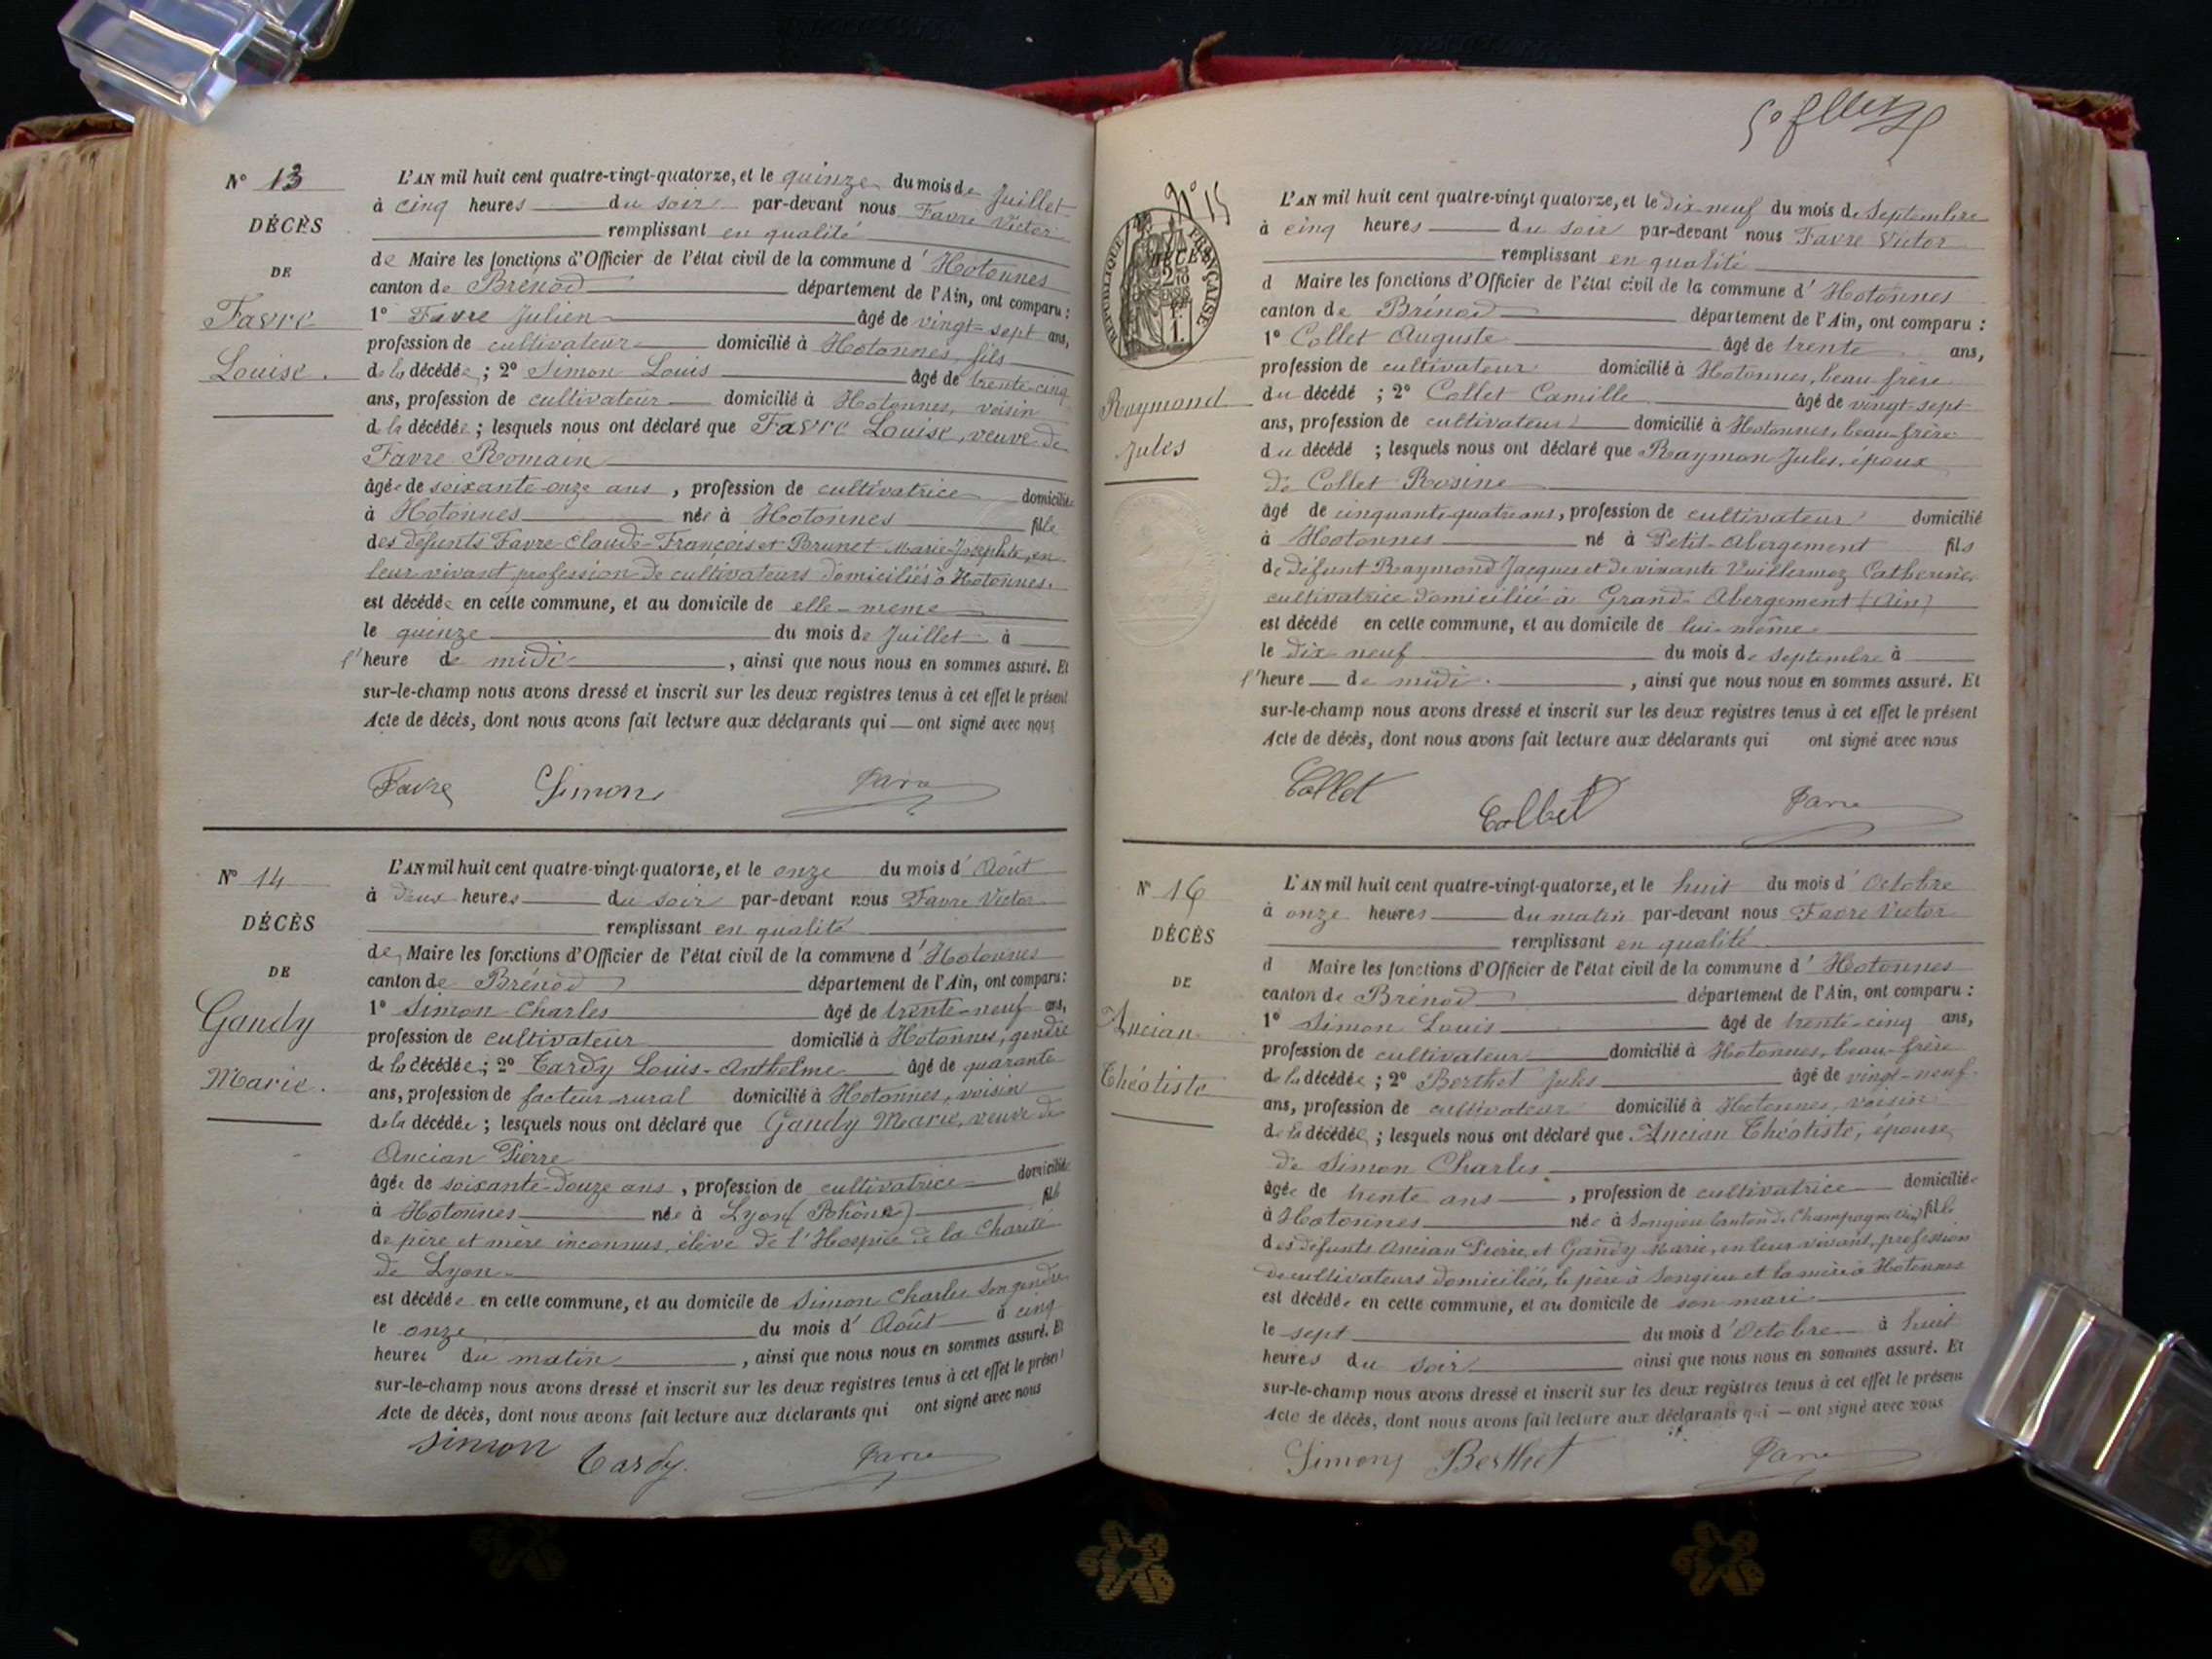 N° 13
DÉCÈS
DE
Favre
Louise.
L'AN mil huit cent quatre-vingt-quatorze, et le quinze du mois de Juillet
à cinq heures du soir par-devant nous Favre Victor
remplissant en qualité
de Maire les fonctions d'Officier de l'état civil de la commune d'Hotonnes
canton de Brénod département de l'Ain, ont comparu :
1° Favre Julien âgé de vingt-sept ans,
profession de cultivateur domicilié à Hotonnes, fils
de la décédée ; 2° Simon Louis âgé de trente-cinq
ans, profession de cultivateur domicilié à Hotonnes, voisin
de la décédée ; lesquels nous ont déclaré que Favre Louise, veuve de
Favre Romain
âgée de soixante-onze ans, profession de cultivatrice domiciliée
à Hotonnes née à Hotonnes fille
des défunts Favre Claude-François et Brunet Marie-Josephte, en
leur vivant profession de cultivateurs domiciliés à Hotonnes.
est décédée en cette commune, et au domicile de elle-meme
le quinze du mois de Juillet à
l'heure de midi, ainsi que nous nous en sommes assuré. Et
sur-le-champ nous avons dressé et inscrit sur les deux registres tenus à cet effet le présent
Acte de décès, dont nous avons fait lecture aux déclarants qui — ont signé avec nous
Favre Simon Favre
N° 14
DÉCÈS
DE
Gandy
Marie.
L'AN mil huit cent quatre-vingt-quatorze, et le onze du mois d'Août
à deux heures du soir par-devant nous Favre Victor
remplissant en qualité
de Maire les fonctions d'Officier de l'état civil de la commune d'Hotonnes
canton de Brénod département de l'Ain, ont comparu :
1° Simon Charles âgé de trente-neuf ans,
profession de cultivateur domicilié à Hotonnes, gendre
de la décédée ; 2° Tardy Louis-Anthelme âgé de quarante
ans, profession de facteur rural domicilié à Hotonnes, voisin
de la décédée ; lesquels nous ont déclaré que Gandy Marie, veuve de
Ancian Pierre
âgée de soixante-douze ans, profession de cultivatrice domiciliée
à Hotonnes née à Lyon (Rhône) fille
de père et mère inconnus, élève de l'Hospice de la Charité
de Lyon
est décédée en cette commune, et au domicile de Simon Charles son gendre
le onze du mois d'Août à cinq
heures du matin, ainsi que nous nous en sommes assuré. Et
sur-le-champ nous avons dressé et inscrit sur les deux registres tenus à cet effet le présent
Acte de décès, dont nous avons fait lecture aux déclarants qui ont signé avec nous
Simon Tardy. Favre
N° 15
RÉPUBLIQUE FRANÇAISE
DÉCÈS
Raymond
Jules
L'AN mil huit cent quatre-vingt quatorze, et le dix-neuf du mois de Septembre
à cinq heures du soir par-devant nous Favre Victor
remplissant en qualité
d Maire les fonctions d'Officier de l'état civil de la commune d'Hotonnes
canton de Brénod département de l'Ain, ont comparu :
1° Collet Auguste âgé de trente ans,
profession de cultivateur domicilié à Hotonnes, beau-frère
du décédé ; 2° Collet Camille âgé de vingt-sept
ans, profession de cultivateur domicilié à Hotonnes, beau-frère
du décédé ; lesquels nous ont déclaré que Raymon Jules, époux
de Collet Rosine
âgé de cinquante-quatre ans, profession de cultivateur domicilié
à Hotonnes né à Petit-Abergement fils
de défunt Raymond Jacques et de vivante Vuillermoz Catherine,
cultivatrice domiciliée à Grand-Abergement (Ain)
est décédé en cette commune, et au domicile de lui-même
le dix-neuf du mois de Septembre à
l'heure de midi., ainsi que nous nous en sommes assuré. Et
sur-le-champ nous avons dressé et inscrit sur les deux registres tenus à cet effet le présent
Acte de décès, dont nous avons fait lecture aux déclarants qui ont signé avec nous
Collet Collet Favre
N° 16
DÉCÈS
DE
Ancian
Théotiste
L'AN mil huit cent quatre-vingt-quatorze, et le huit du mois d'Octobre
à onze heures du matin par-devant nous Favre Victor
remplissant en qualité
d Maire les fonctions d'Officier de l'état civil de la commune d'Hotonnes
canton de Brénod département de l'Ain, ont comparu :
1° Simon Louis âgé de trente-cinq ans,
profession de cultivateur domicilié à Hotonnes, beau-frère
de la décédée ; 2° Berthet Jules âgé de vingt-neuf
ans, profession de cultivateur domicilié à Hotonnes, voisin
de la décédée ; lesquels nous ont déclaré que Ancian Théotiste, épouse
de Simon Charles
âgée de trente ans, profession de cultivatrice domiciliée
à Hotonnes née à Songieu Canton de Champagne (Ain) fille
des défunts Ancian Pierre, et Gandy Marie, en leur vivant, profession
de cultivateurs domiciliés, le père à Songieu et la mère à Hotonnes
est décédée en cette commune, et au domicile de son mari
le sept du mois d'Octobre à huit
heures du soir ainsi que nous nous en sommes assuré. Et
sur-le-champ nous avons dressé et inscrit sur les deux registres tenus à cet effet le présent
Acte de décès, dont nous avons fait lecture aux déclarants qui — ont signé avec nous
Simon Berthet Favre